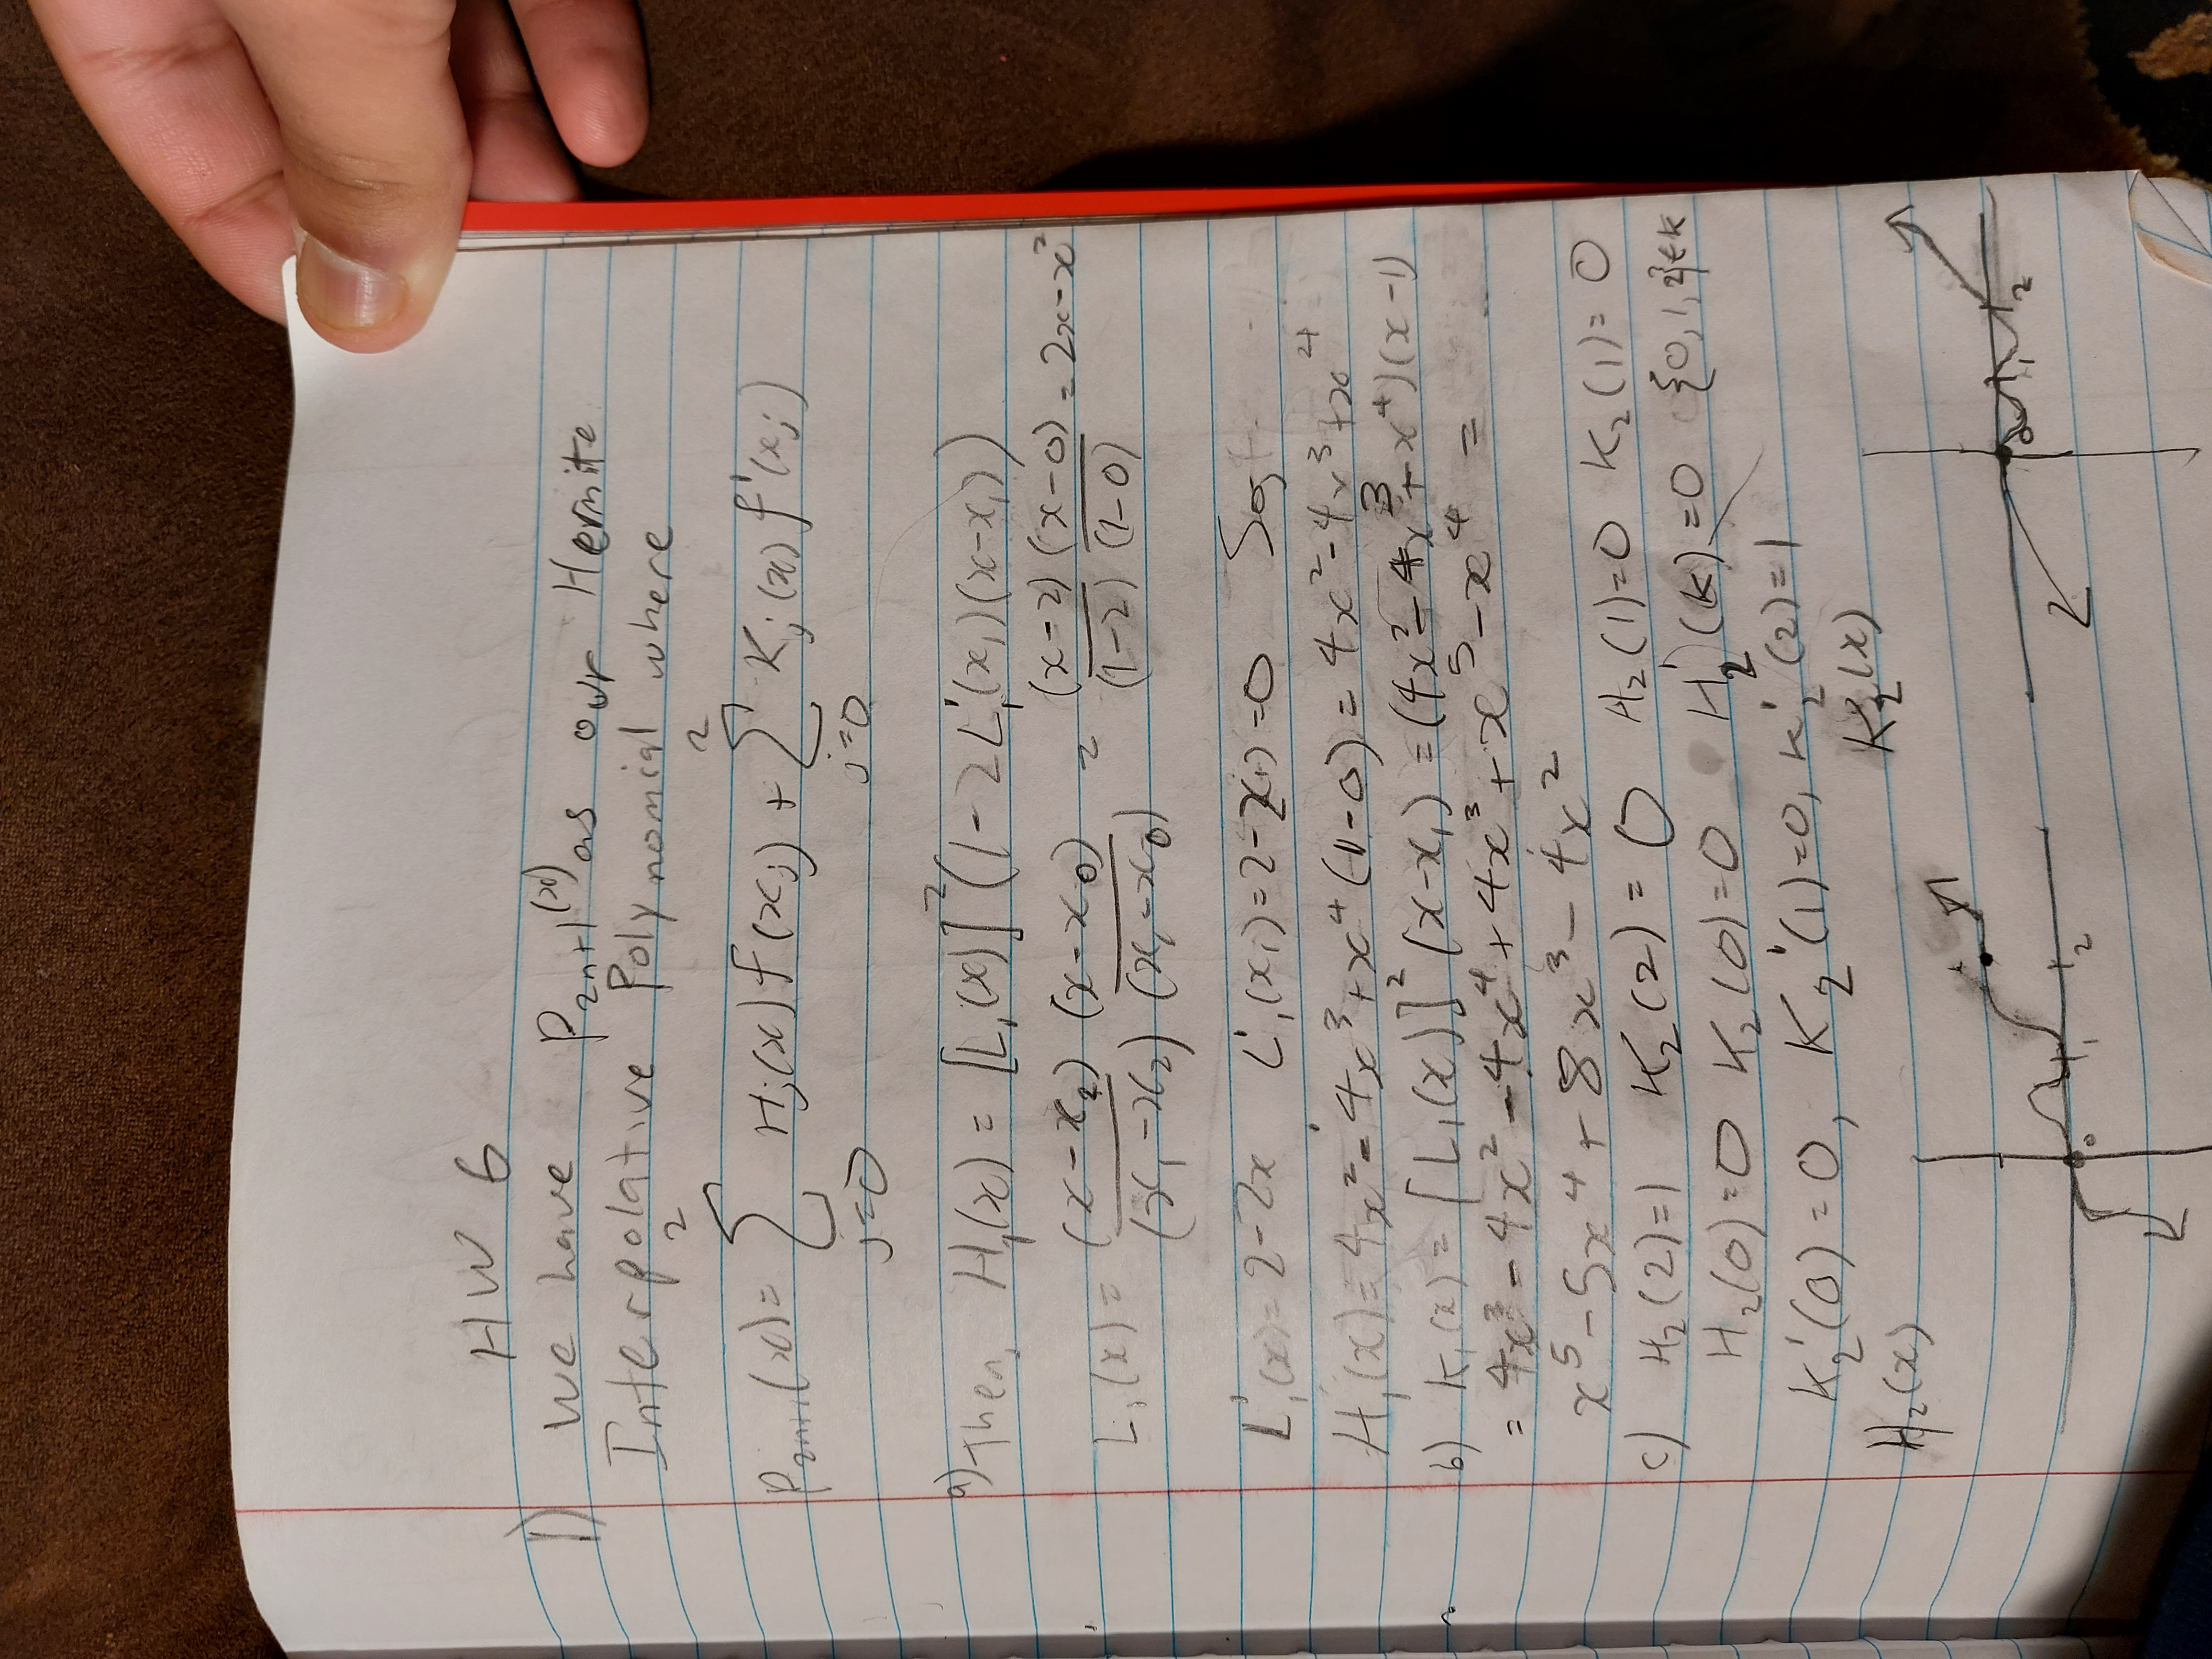 HW 6
1) We have P_{2n+1}(x) as our Hermite
Interpolative Polynomial where
P_{2n+1}(x) = \sum_{j=0}^{2} H_j(x) f(x_j) + \sum_{j=0}^{2} K_j(x) f'(x_j)
a) Then, H_1(x) = [L_1(x)]^2 (1 - 2L_1'(x_1)(x-x_1))
L_1(x) = \frac{(x-x_2)}{(x_1-x_2)} \frac{(x-x_0)}{(x_1-x_0)} = \frac{(x-2)}{(1-2)} \frac{(x-0)}{(1-0)} = 2x-x^2
L_1'(x) = 2-2x L_1'(x_1) = 2-2(1) = 0 So,
H_1(x) = 4x^2 - 4x^3 + x^4 (1-0) = 4x^2 - 4x^3 + x^4
b) K_1(x) = [L_1(x)]^2 (x-x_1) = (4x^2 - 4x^3 + x^4)(x-1)
= 4x^3 - 4x^2 - 4x^4 + 4x^3 + x^5 - x^4 =
x^5 - 5x^4 + 8x^3 - 4x^2
c) H_2(2)=1 K_2(2) = 0 H_2(1)=0 K_2(1)=0
H_2(0)=0 K_2(0)=0 H_2'(k)=0 {0,1,2}∈k
K_2'(0)=0, K_2'(1)=0, K_2'(2)=1
H_2(x) K_2(x)
0 1 2
0 1 2